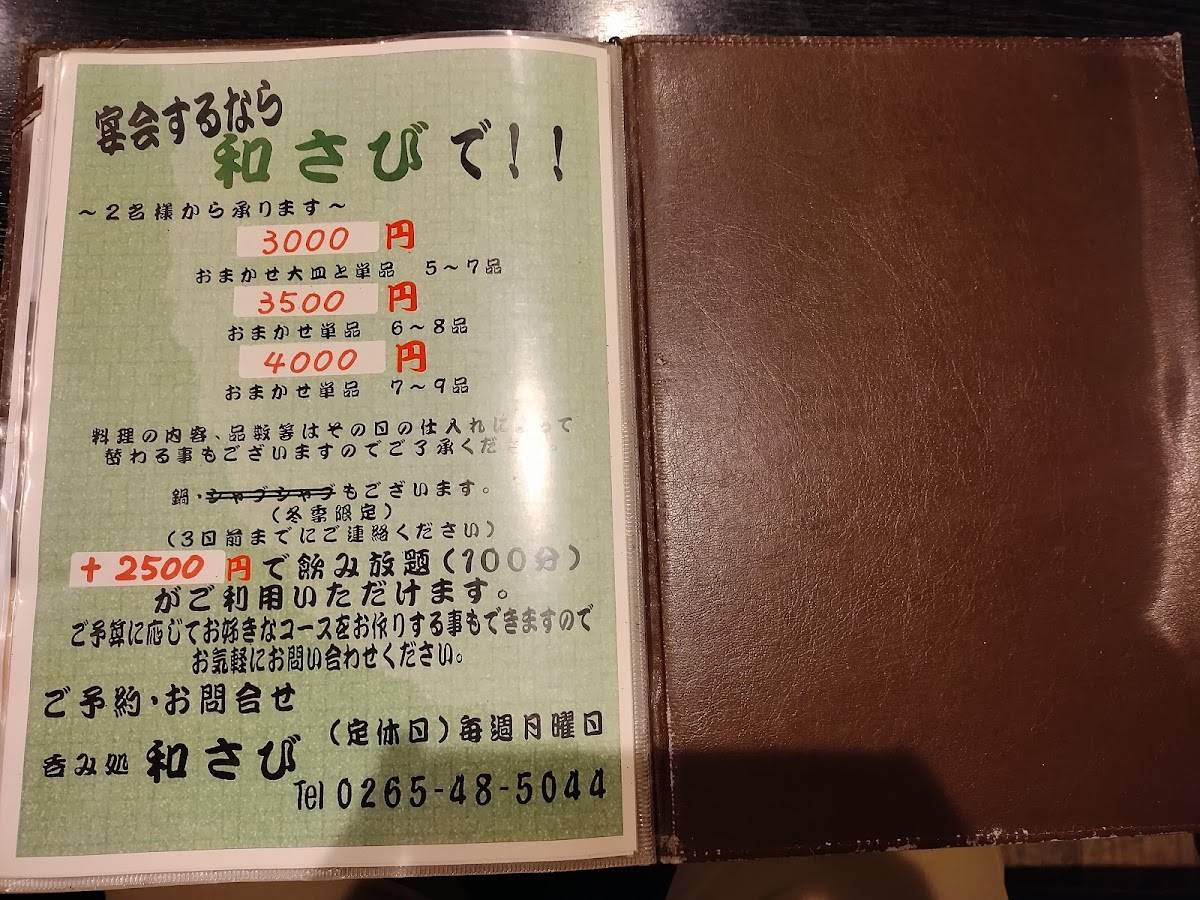 宴会するなら
和さびで!!
～2名様から承ります～
3000 円
おまかせ大皿と単品 5～7品
3500 円
おまかせ単品 6～8品
4000 円
おまかせ単品 7～9品
料理の内容、品数等はその日の仕入れによって
替わる事もございますのでご了承ください。
鍋・シャブシャブもございます。
(冬季限定)
(3日前までにご連絡ください)
+2500 円で飲み放題(100分)
がご利用いただけます。
ご予算に応じてお好きなコースをお作りする事もできますので
お気軽にお問い合わせください。
ご予約・お問合せ
(定休日)毎週月曜日
呑み処 和さび
Tel 0265-48-5044